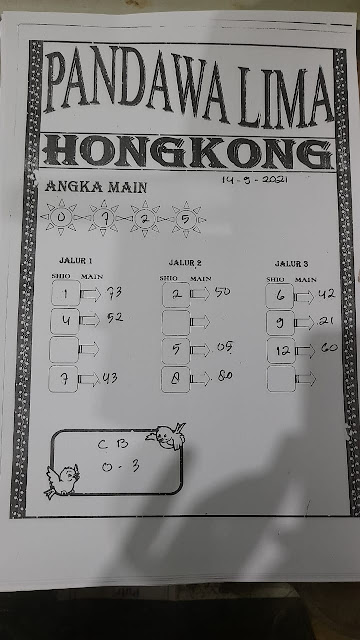 PANDAWA LIMA
HONGKONG
ANGKA MAIN 14-9-2021
0 7 2 5
JALUR 1 JALUR 2 JALUR 3
SHIO MAIN SHIO MAIN SHIO MAIN
1 73 2 50 6 42
4 52 9 21
5 05 12 60
7 43 8 80
C B
0-3